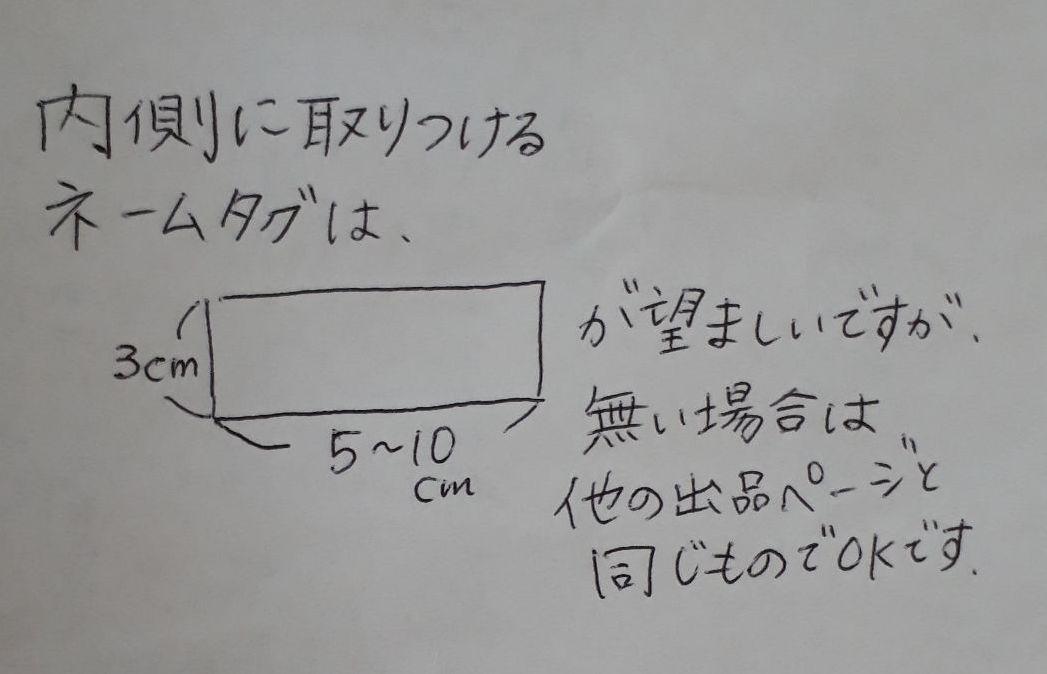 内側に取りつける
ネームタグは、
3cm
5~10
cm
が望ましいですが、
無い場合は、
他の出品ページと
同じものでOKです.